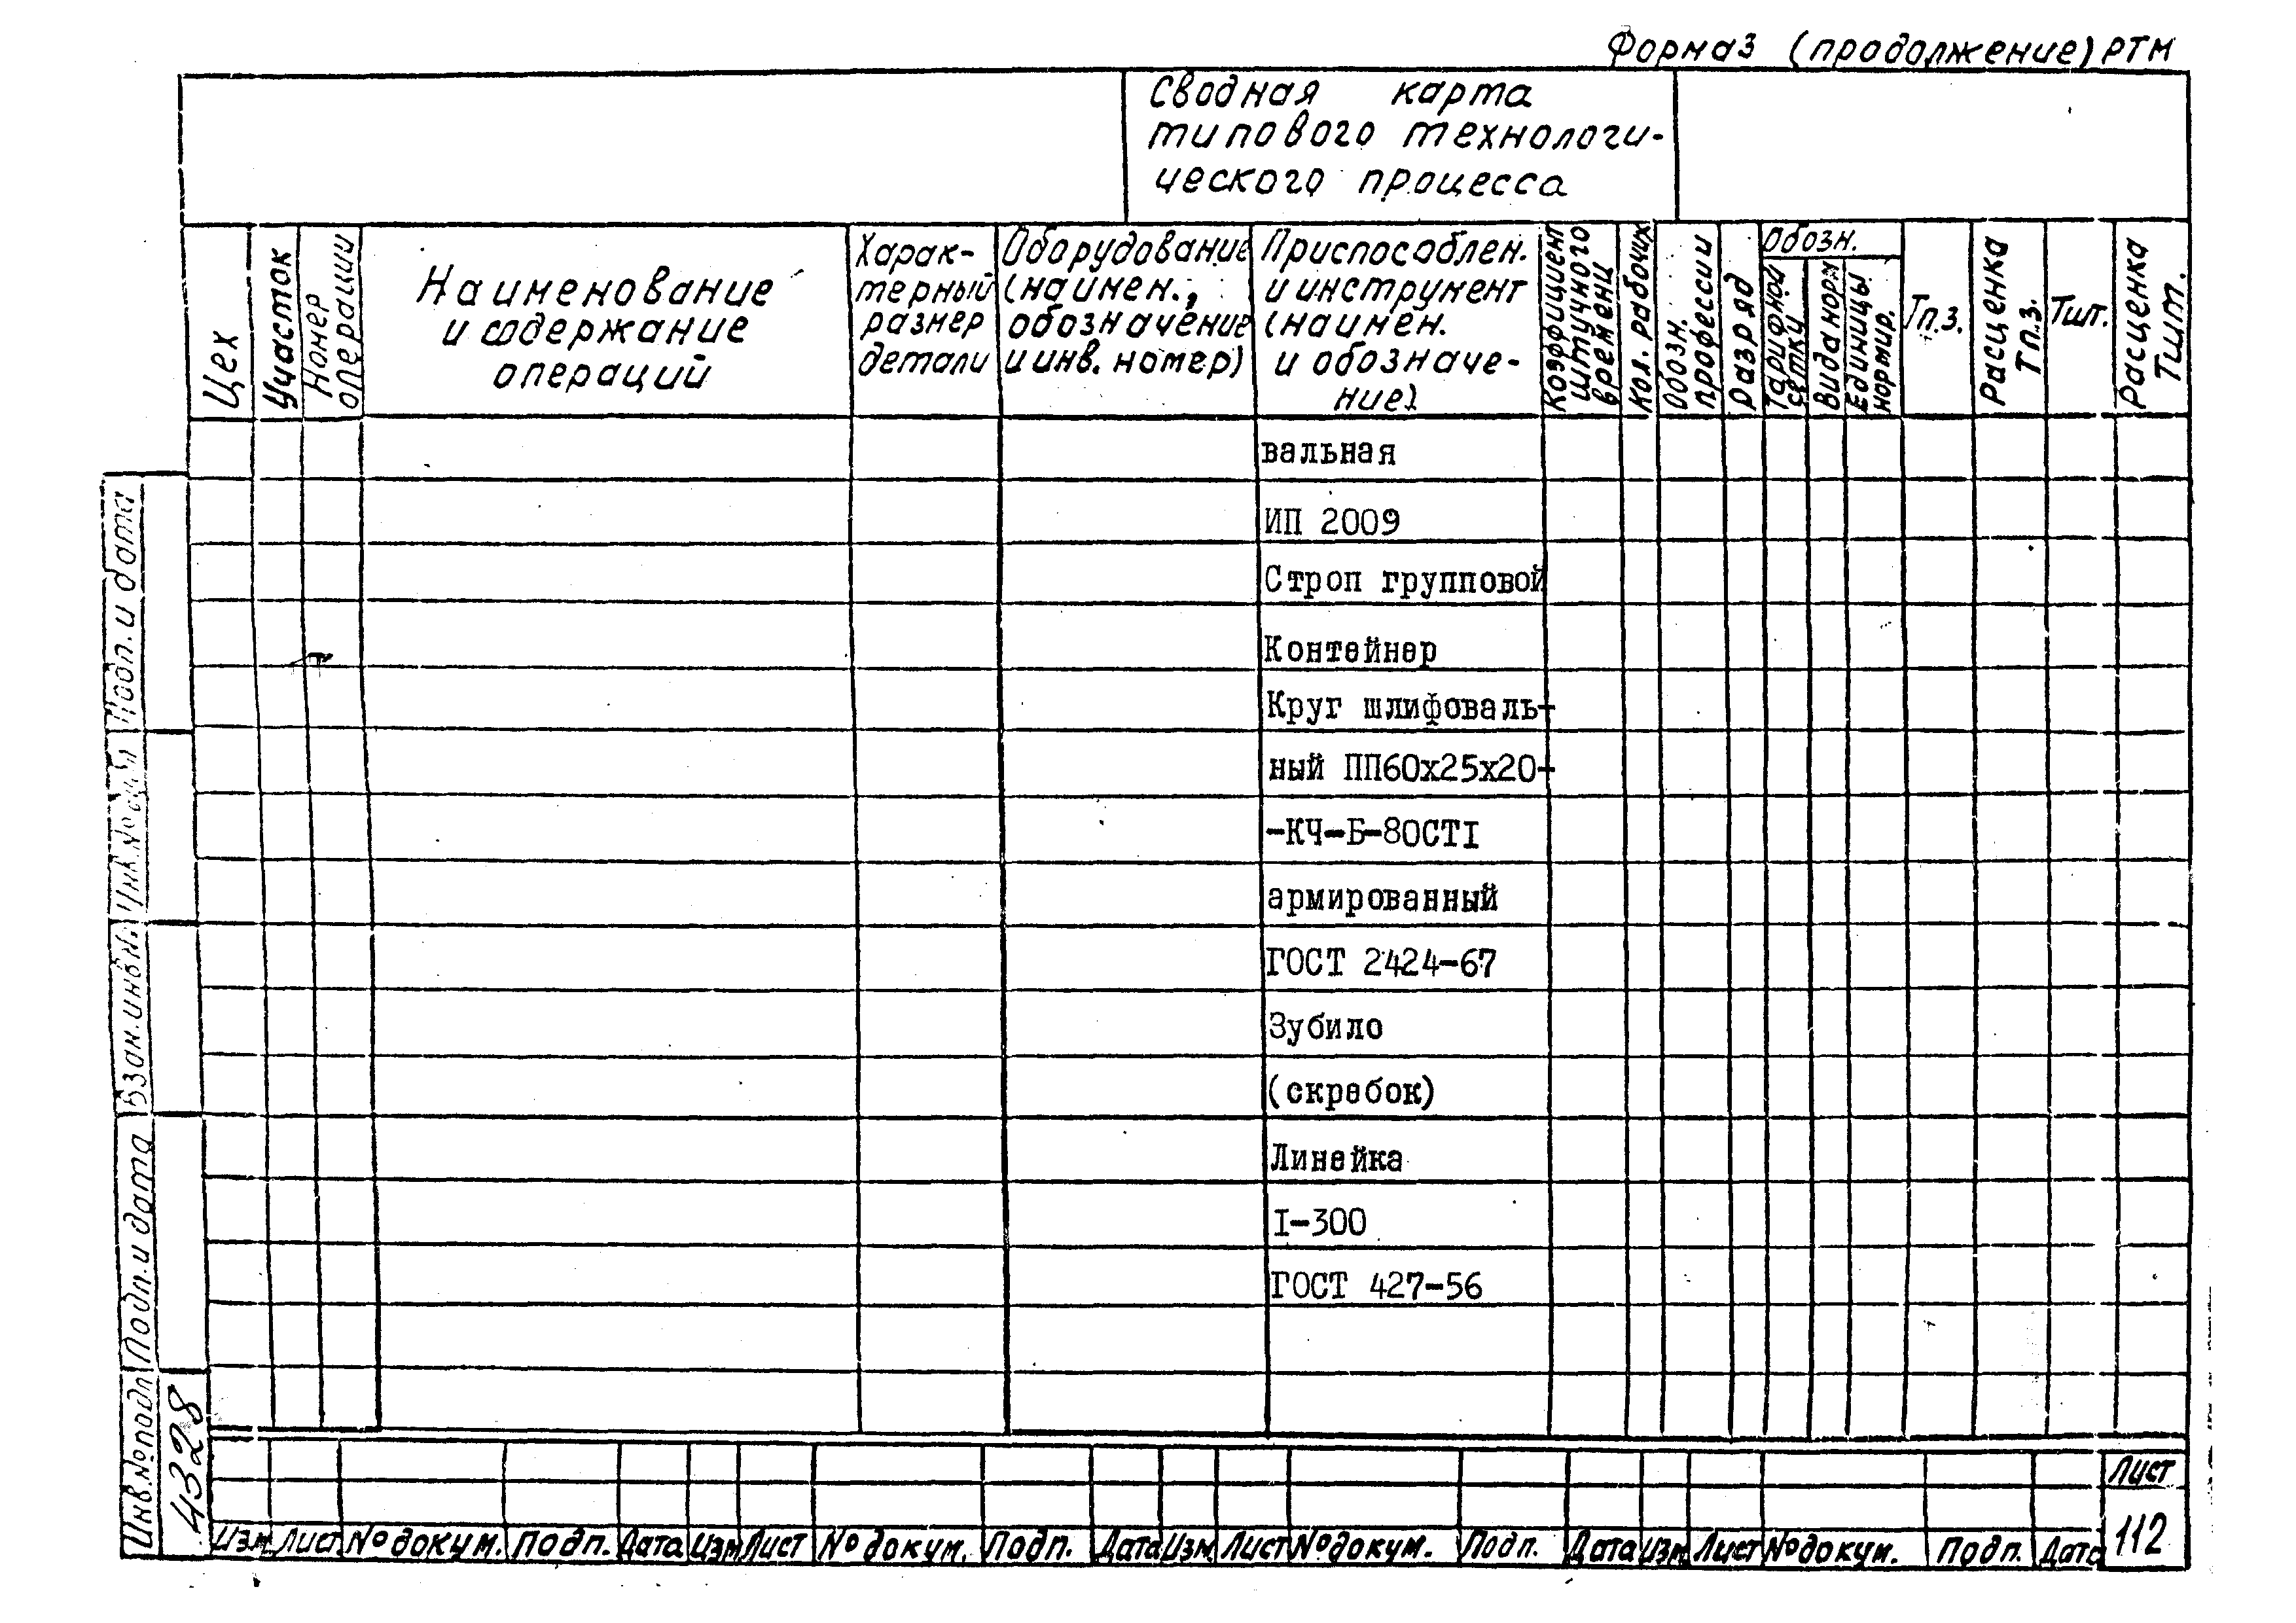 Форма3 (продолжение) РТМ
Сводная карта
типового технологи-
ческого процесса
Цех
Участок
Номер
операции
Наименование
и содержание
операций
Харак-
терный
размер
детали
Оборудование
(наимен.,
обозначение
и инв. номер)
Приспособлен.
и инструмент
(наимен.
и обозначе-
ние)
Коэффициент
штучного
времени
Кол. рабочих
Обозн.
профессии
Разряд
Обозн.
Тарифной
сетки
Вида норм
Единицы
нормир.
Тп.з.
Расценка
Тп.з.
Тшт.
Расценка
Тшт.
вальная
ИП 2009
Строп групповой
Контейнер
Круг шлифоваль-
ный ПП60х25х20-
-КЧ-Б-80СТI
армированный
ГОСТ 2424-67
Зубило
(скребок)
Линейка
I-300
ГОСТ 427-56
Подп. и дата
Инв.№дубл
Взам.инв.№
Подп. и дата
Инв.№подл
4328
Изм Лист №докум. Подп. Дата Изм Лист №докум. Подп. Дата Изм Лист №докум. Подп. Дата Изм Лист №докум. Подп. Дата
Лист
112